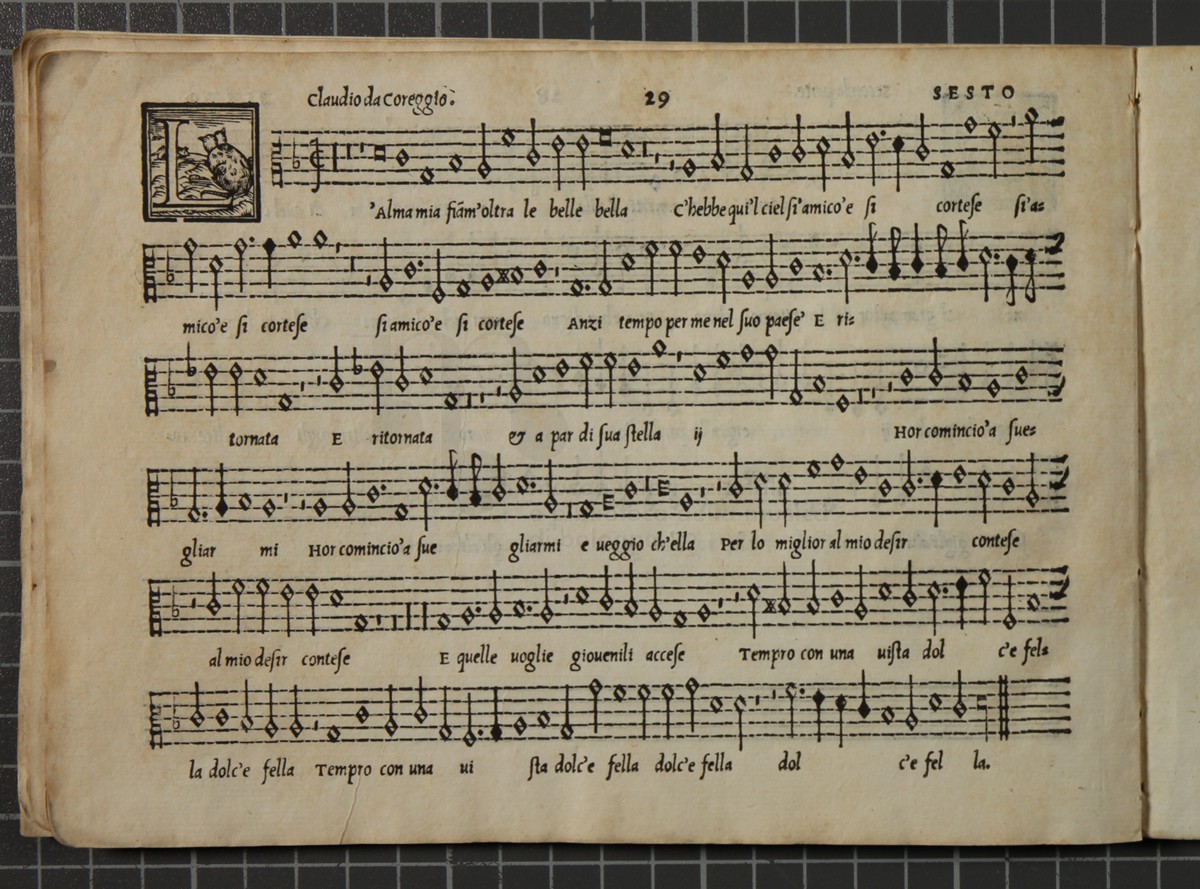 Claudio da Coreggio. 29 SESTO
L'Alma mia fiãm'oltra le belle bella C'hebbe qui'l ciel si'amico'e si cortese si'a=
mico'e si cortese si amico'e si cortese Anzi tempo per me nel suo paese' E ri=
tornata E ritornata & a par di sua stella ij Hor comincio'a sue=
gliar mi Hor comincio'a sue gliarmi e ueggio ch'ella Per lo miglior al mio desir contese
al mio desir contese E quelle uoglie giouenili accese Tempro con una uista dol c'e fel=
la dolc'e fella Tempro con una ui sta dolc'e fella dolc'e fella dol c'e fel la.